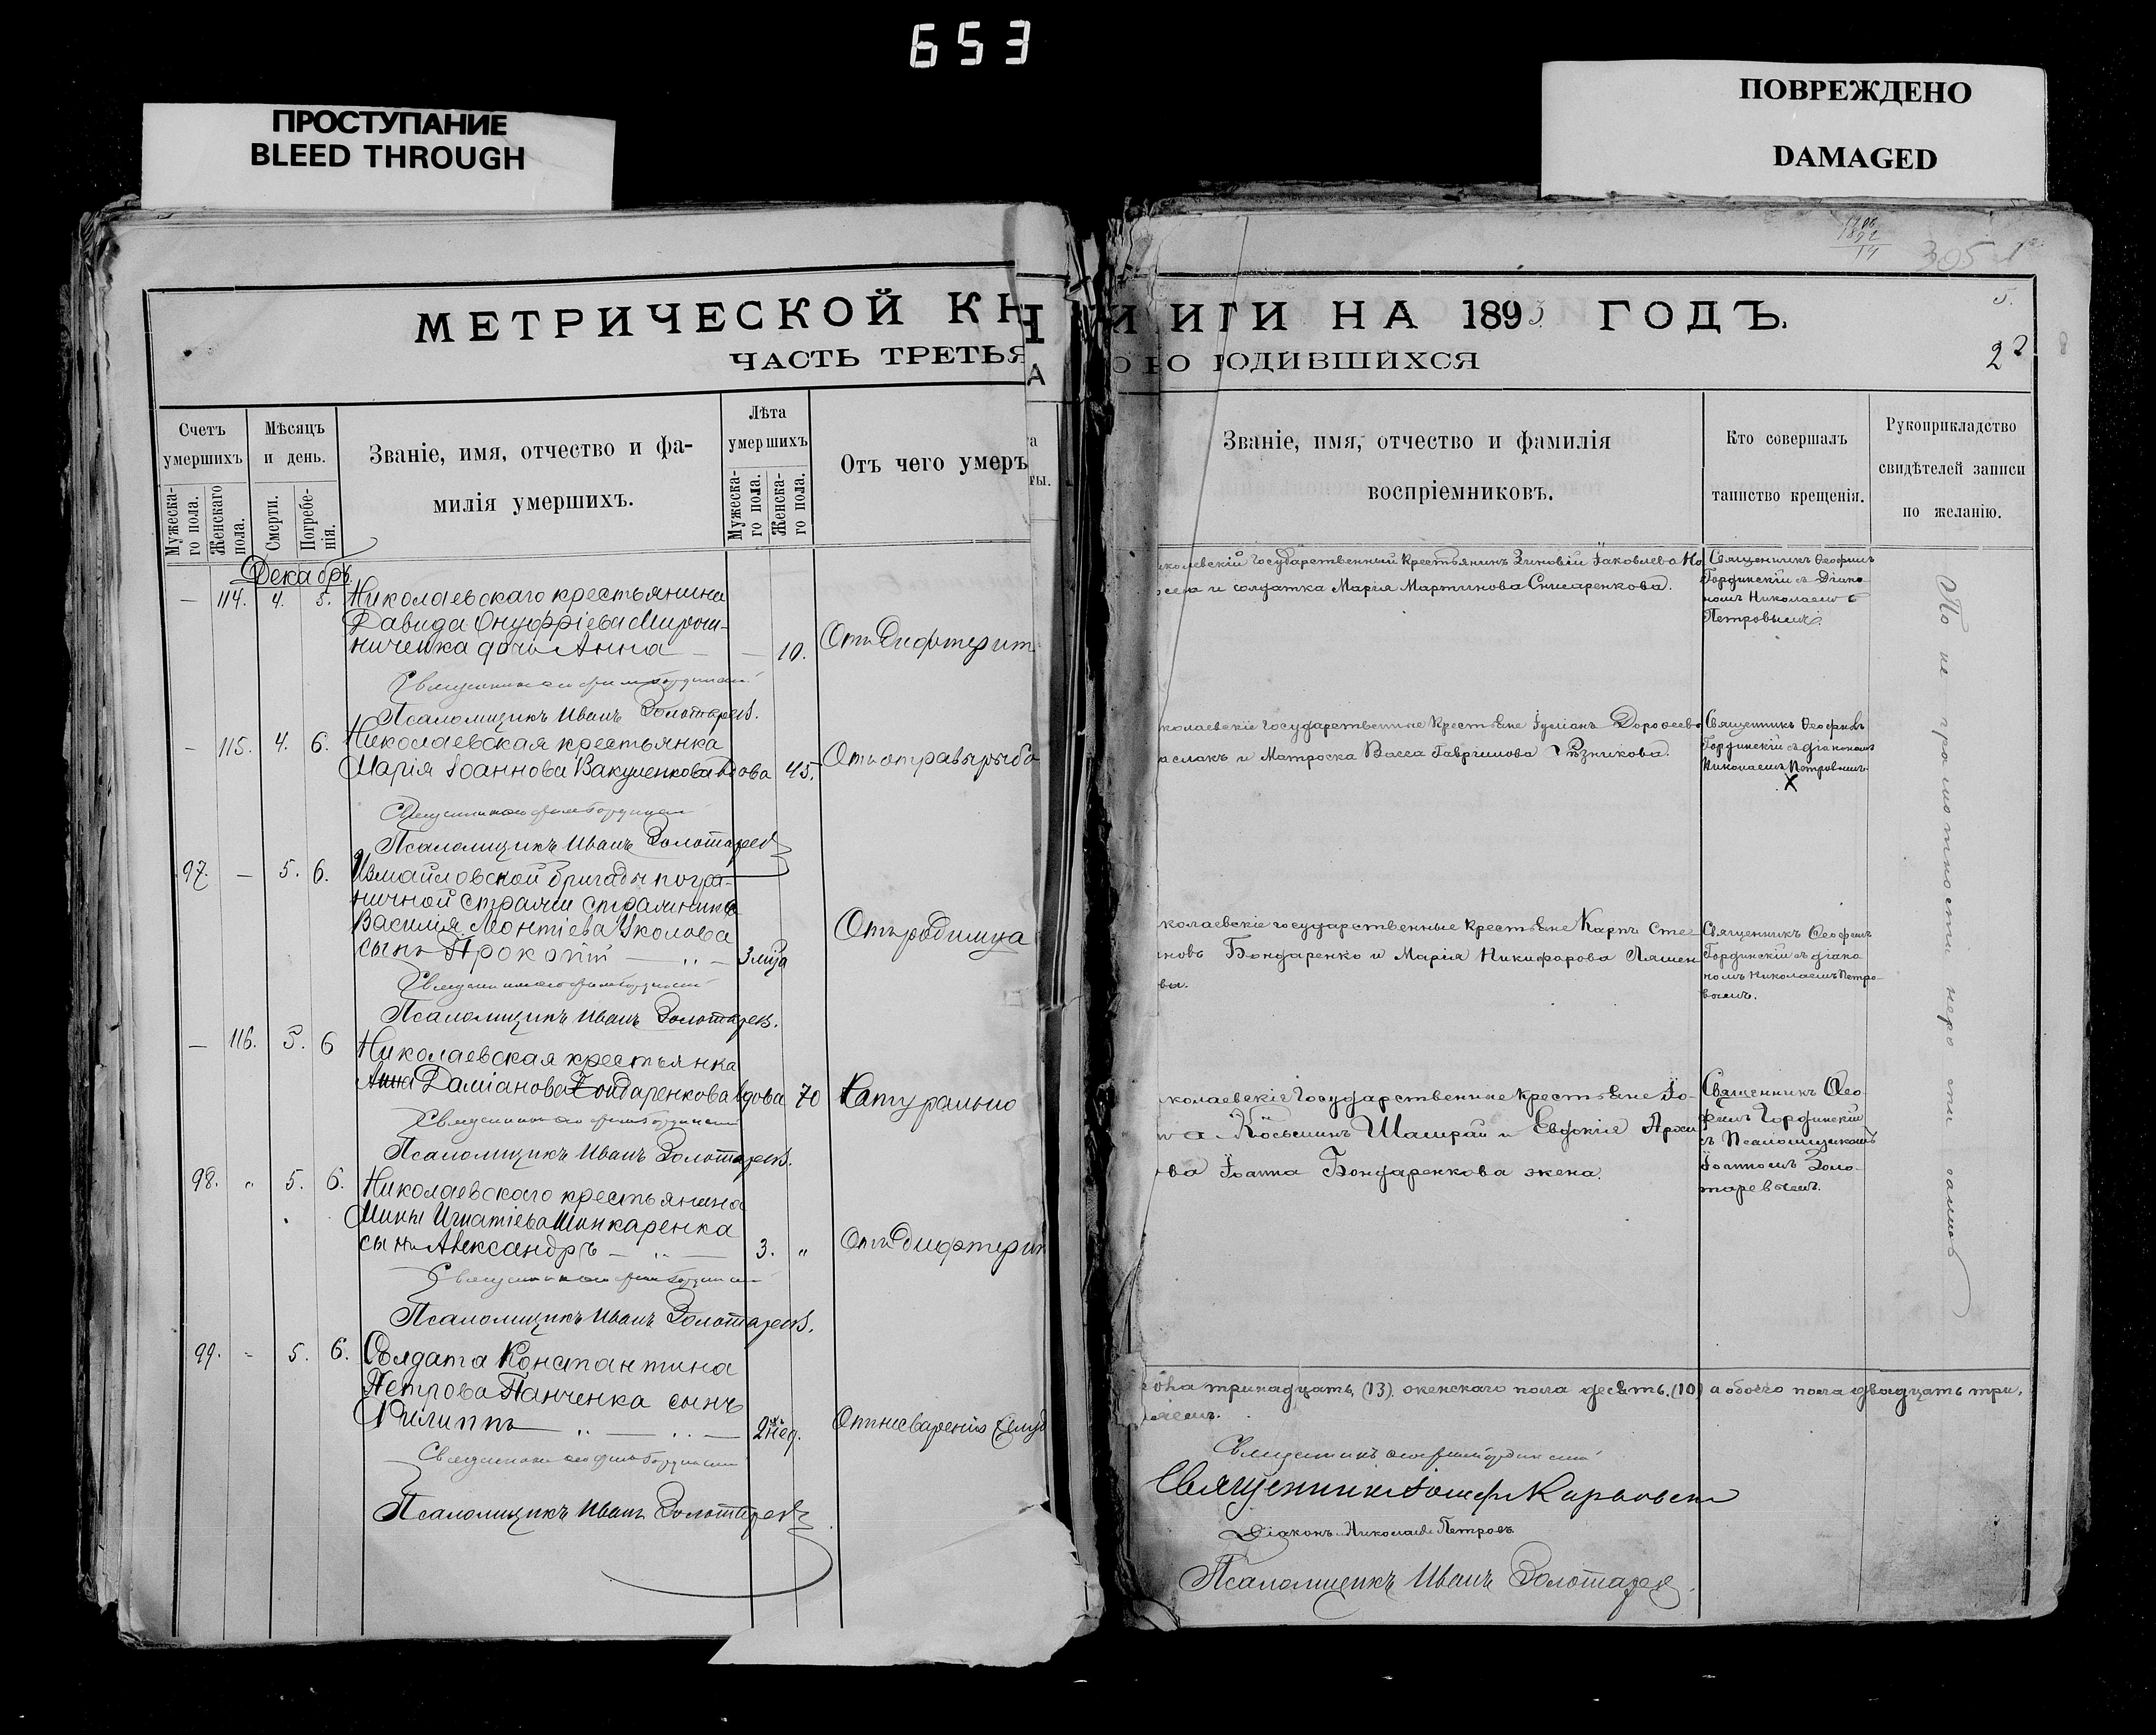 653
ПРОСТУПАНИЕ
BLEED THROUGH
ПОВРЕЖДЕНО
DAMAGED
МЕТРИЧЕСКОЙ КН
ЧАСТЬ ТРЕТЬЯ
Счетъ умершихъ.
Мужеска-го пола.
Женскаго пола.
Мѣсяцъ и день.
Смерти.
Погребе-нія.
Званіе, имя, отчество и фа-
милія умершихъ.
Лѣта умершихъ
Мужеска-го пола.
Женска-го пола.
Отъ чего умеръ
Декабрь.
— 114. 4. 5. Николаевскаго крестьянина
Давида Онуфріева Мирош-
ниченка дочь Анна — — 10. Отъ дифтерит
Псаломщикъ Иванъ Золотаревъ.
— 115. 4. 6. Николаевская крестьянка
Марія Іоаннова Вакуленкова вдова 45.
Псаломщикъ Иванъ Золотаревъ
97. — 5. 6. Измайловской бригады погра-
ничной стражи стражника
Василія Леонтіева Уколова
сынъ Прокопій — „ — 3 мѣсяца Отъ родимца
Псаломщикъ Иванъ Золотаревъ.
— 116. 5. 6 Николаевская крестьянка
Анна Даміанова Бондаренкова вдова 70 Натурально
Псаломщикъ Иванъ Золотаревъ.
98. „ 5. 6. Николаевскаго крестьянина
Мины Игнатіева Шинкаренка
сынъ Александръ — „ — 3. „ Отъ дифтерит
Псаломщикъ Иванъ Золотаревъ.
99. - 5. 6. Солдата Константина
Петрова Панченка сынъ
Филиппъ — „ — „ — 2 нед. Отъ несваренія желуд
Псаломщикъ Иванъ Золотаревъ
305
ИГИ НА 1893 ГОДЪ.
5.
ЮДИВШИХСЯ
22
Званіе, имя, отчество и фамилія
воспріемниковъ.
Кто совершалъ
таинство крещенія.
Рукоприкладство
свидѣтелей записи
по желанію.
иколаевскій государственный крестьянинъ Зиновій Іаковлевъ Но
и солдатка Марія Мартинова Слисаренкова.
Священникъ Ѳеофилъ
Гординскій съ Діако-
номъ Николаемъ
Петровымъ.
колаевскіе государственные крестьяне Іуліанъ Дороѳеевъ
аслакъ и Матроска Васса Гавріилова Рѣзникова.
Священникъ Ѳеофилъ
Гординскій съ діакономъ
Николаемъ Петровымъ.
X
колаевскіе государственные крестьяне Карпъ Сте
новъ Бондаренко и Марія Никифорова Ляшен
вы.
Священникъ Ѳеофилъ
Гординскій съ діако
номъ Николаемъ Петро-
вымъ.
колаевскіе Государственные крестьяне Іо-
Косьминъ Шамрай и Евдокія Архи
ва Іоанна Бондаренкова жена.
Священникъ Ѳео-
филъ Гординскій
съ Псаломщикомъ
Іоанномъ Золо-
таревымъ.
тринадцать (13). женскаго пола десять. (10) а обоего пола двадцать три.
Священникъ Іосифъ
Діаконъ Николай Петровъ
Псаломщикъ Иванъ Золотаревъ.